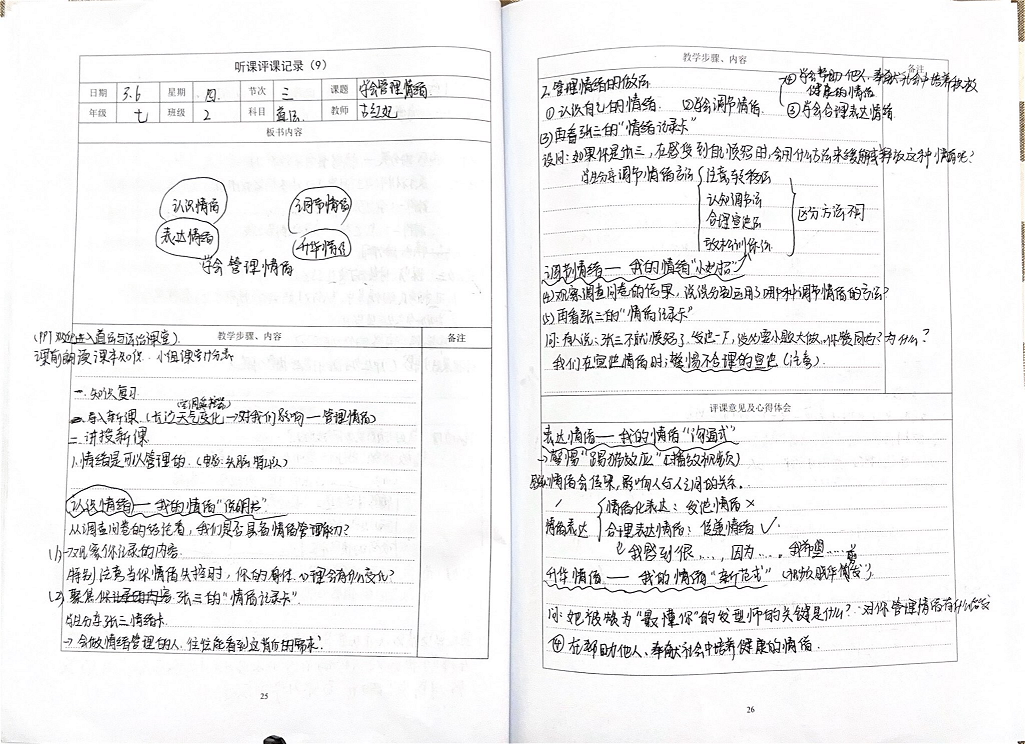 听课评课记录（9）
日期 3.6 星期 四 节次 三 课题 学会管理情绪
年级 七 班级 2 科目 道法 教师
板书内容
认识情绪 调节情绪
表达情绪 升华情绪
学会管理情绪
教学步骤、内容 备注
(PPT 欢迎进入道德与法治课堂)
课前朗读课本知识.小组课
一.知识复习
导入新课.(天气变化→对我们影响—管理情绪)
二.讲授新课
1.情绪是可以管理的.
认识情绪——我的情绪"说明书".
从调查问卷的结论看，我们是否具备情绪管理能力?
(1)→观察你记录的内容.
特别注意当你情绪失控时，你的身体、心理会有什么变化?
(2)聚焦 张三的"情绪记录卡".
学生分享张三情绪卡.
→会做情绪管理的人，往往能看到这背后的需求.
25
教学步骤、内容 备注
2.管理情绪的做法 ④学会帮助他人、奉献社会中培养积极健康的情绪
①认识自己的情绪. ②学会调节情绪. ③学会合理表达情绪
(3)再看张三的"情绪记录卡"
设问:如果你是张三,在感受到自己愤怒时,会用什么方法来缓解或释放这种情绪呢?
学生分享调节情绪方法 注意转移法
认知调节法
合理宣泄法
放松训练法
区分方法不同
调节情绪——我的情绪"小妙招"
(4)观察调查问卷的结果，说说分别运用了哪种调节情绪的方法?
(5)再看张三的"情绪记录卡"
问:有人说:张三不就愤怒了,发泄一下,没必要小题大做,你赞同吗?为什么?
我们在宣泄情绪时:警惕不合理的宣泄(注意).
评课意见及心得体会
表达情绪——我的情绪"沟通式"
→警惕"踢猫效应"(播放视频)
情绪会传染,影响人与人之间的关系.
情绪表达 情绪化表达:发泄情绪×
合理表达情绪: 情绪✓
我感到很……,因为……,我希望……
升华情绪——我的情绪"新范式"
问:她被誉为"最懂你"的发型师的关键是什么?对你管理情绪有什么启发
④在帮助他人、奉献社会中培养健康的情绪.
26